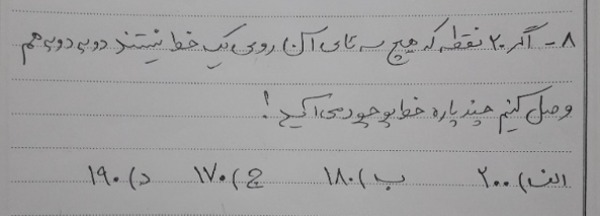 ۸- اگر ۲۰ نقطه که هیچ سه تای آن روی یک خط نیستند دو به دو به هم
وصل کنیم چند پاره خط بوجود می آید!
الف) ۲۰۰ ب) ۱۸۰ ج) ۱۷۰ د) ۱۹۰